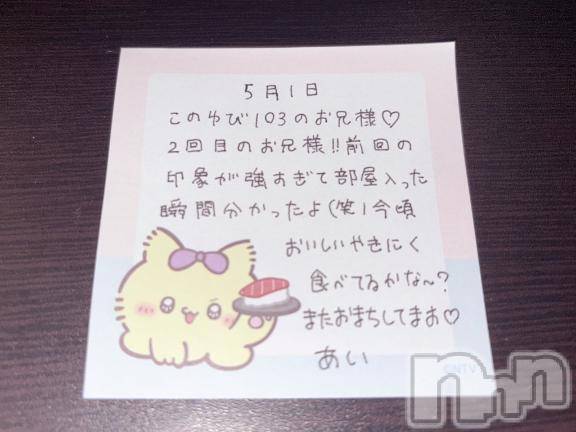 5月1日
このゆび103のお兄様♡
2回目のお兄様!!前回の
印象が強すぎて部屋入った
瞬間分かったよ(笑)今頃
おいしいやきにく
食べてるかな〜?
またおまちしてまお♡
あい
©NTV
nn